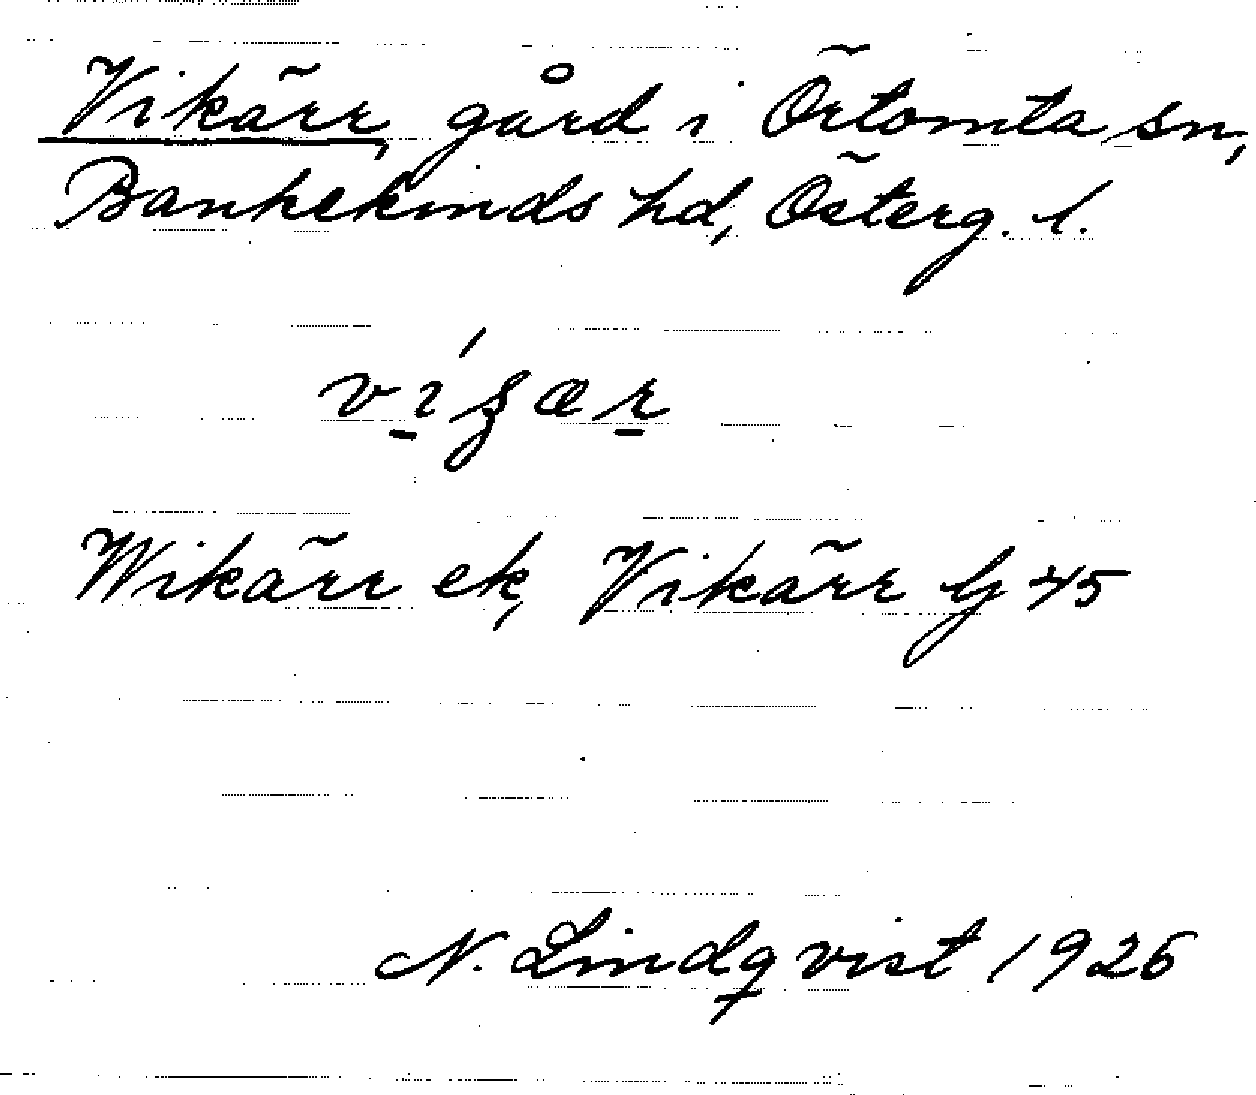 Vikärr, gård i Örtomta sn,
Bankekinds hd, Österg. l.
Wikärr ek, Vikärr G 45
N. Lindqvist 1926